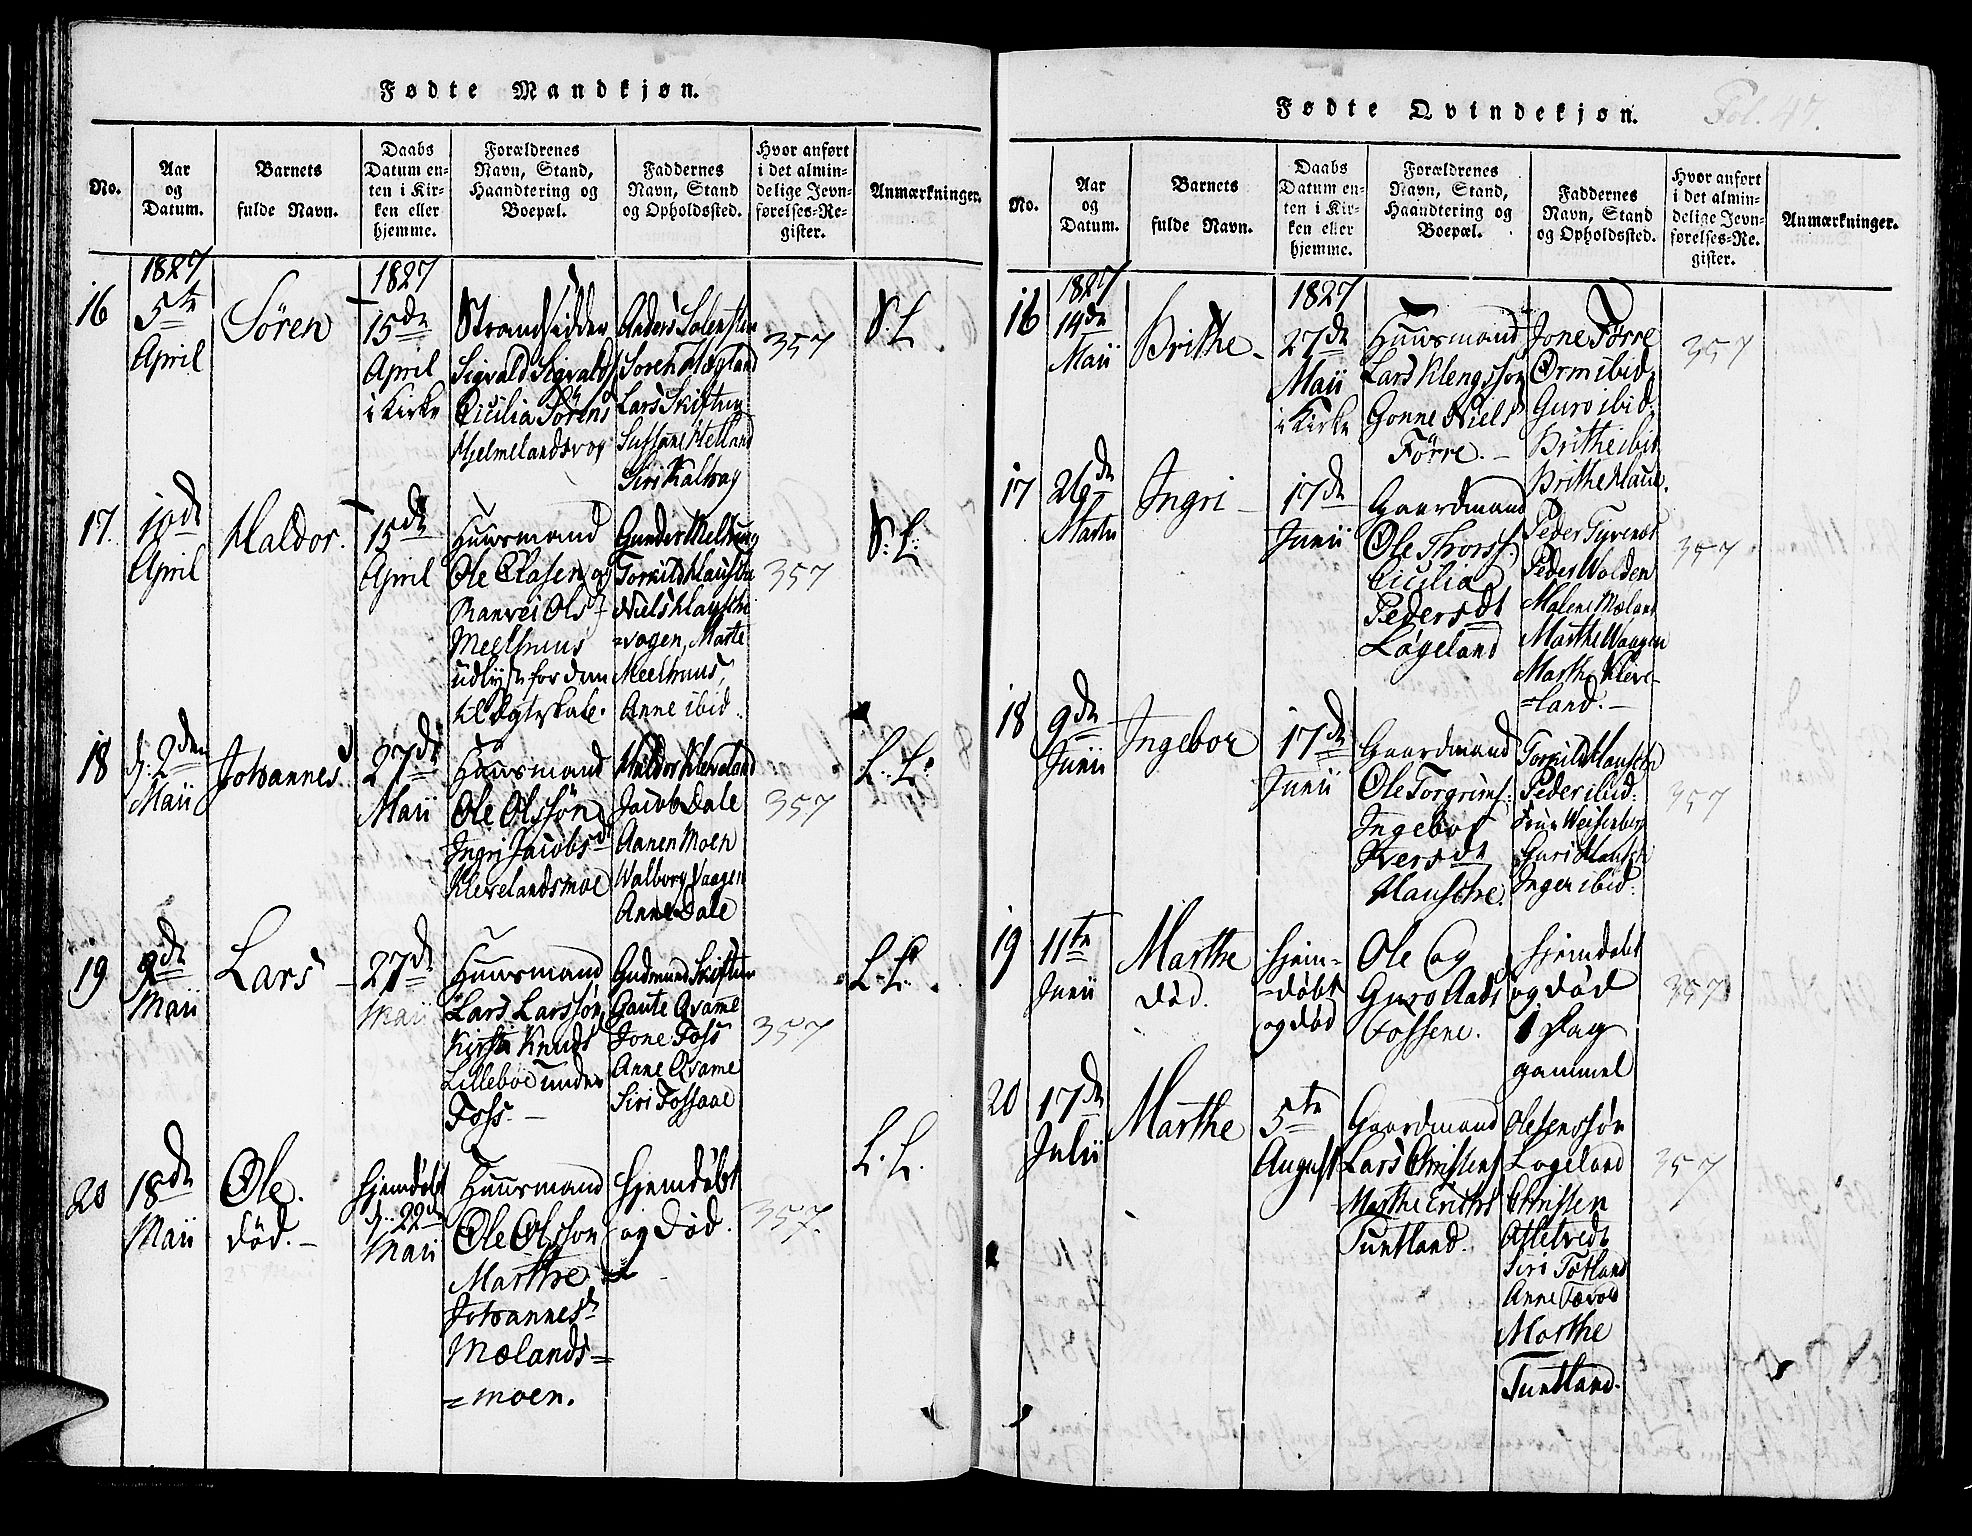 Fødte Mandkjøn.
No.
Aar
og
Datum.
Barnets
fulde Navn.
Daabs
Datum en-
ten i Kir-
ken eller
hjemme.
Forældrenes
Navn, Stand,
Haandtering og
Boepæl.
Faddernes
Navn, Stand
og Opholdssted.
Hvor anført
i det almin-
delige Jevn-
førelses-Re-
gister.
Anmærkninger.
16
1827
5te
April
Sören
1827
15de
April
i Kirke
Strandsidder
Sigvald Sigvalds
Cicilia Sörens
Hjelmelandsvog
Søren Mægland
Lars Skiftun
Siri Kalvag
357
S. L.
17.
10de
April
Haldor.
15de
April
Huusmand
Ole Olasen og
Ranvei Ols
Meelhuus
udlyst for dem
Torkild Hauske
Niels Hauske
=vogen, Marte
Meelhuus,
Anne ibid.
357
S. L.
18
d. 2den
Maii
Johannes
27de
Maii
Huusmand
Ole Olssön
Ingri Jacobsd
Klevelandsmoe
Haldor Kleveland
Jacob Dale
Aanen Moen
Walborg Vaagen
Anne Dale
357
L. L.
19
9de
Maii
Lars
27de
Maii
Huusmand
Lars Larssön
Kirsti Knuds
Lilleboe under
Foss.
Gudmund Skiftun
Gaute Qvame
Jone Foss
Anne Qvame
Siri Fossaae
357
L. L.
20
18de
Maii
Ole.
död.
Hjemdöbt
d. 22de
Maii
Huusmand
Ole Olsson
Marthe
Johannesd
Mælands=
=moen.
Hjemdöbt
og död.
357.
L. L.
Fødte Qvindekjøn.
Fol. 47.
No.
Aar
og
Datum.
Barnets
fulde Navn.
Daabs
Datum en-
ten i Kir-
ken eller
hjemme.
Forældrenes
Navn, Stand,
Haandtering og
Boepæl.
Faddernes
Navn, Stand
og Opholdssted.
Hvor anført
i det almin-
delige Jevn-
førelses-Re-
gister.
Anmærkninger.
16
1827
14de
Maii
Brithe
1827
27de
Maii
i Kirke
Huusmand
Lars Klengssön
Gonne Niels
Förre.
Jone Förre
Orm ibid.
Guro ibid.
Brithe ibid
357
17
26de
Martii
Ingri
17de
Junii
Gaardmand
Ole Thorss.
Cicilia
Pedersdt
Løgeland
Peder Wolden
Malene Mæland
Marthe Waagen
Marthe Kleve-
=land.
357
18
9de
Junii
Ingebor
17de
Junii
Gaardmand
Ole Torgrims.
Ingebor
Iversdt
Hauske.
Torkild Hausken
Peder ibid.
Inger ibid.
357
19
11te
Junii
Marthe
död.
Hjem-
=döbt
og död
Ole og
Guro Aads
Fossene.
Hjemdöbt
og död
1 Dag
gammel
357
20
17de
Julii
Marthe
5te
August
Gaardmand
Lars Christens
Marthe Erichs
Tuntland.
Ole Jenssön
Løgeland
Christen
Siri Totland
Marthe
Tuntland.
357